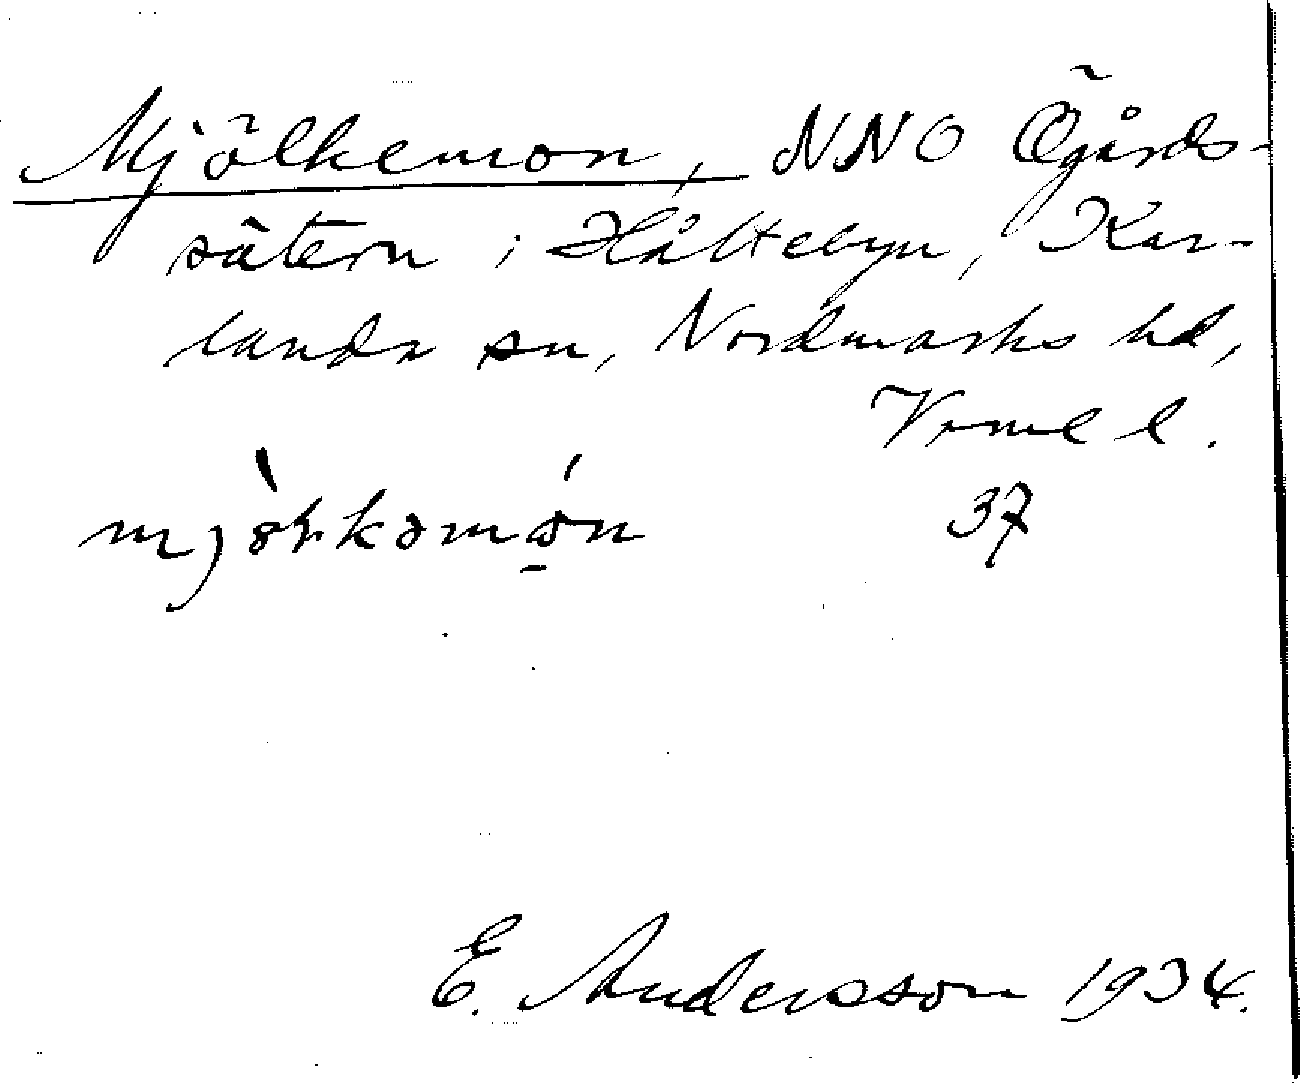 Mjölkemon, NNO Ögårds-
sätern i Håltebyn, Kar-
landa sn, Nordmarks hd,
Vrml l.
37
E. Andersson 1934.